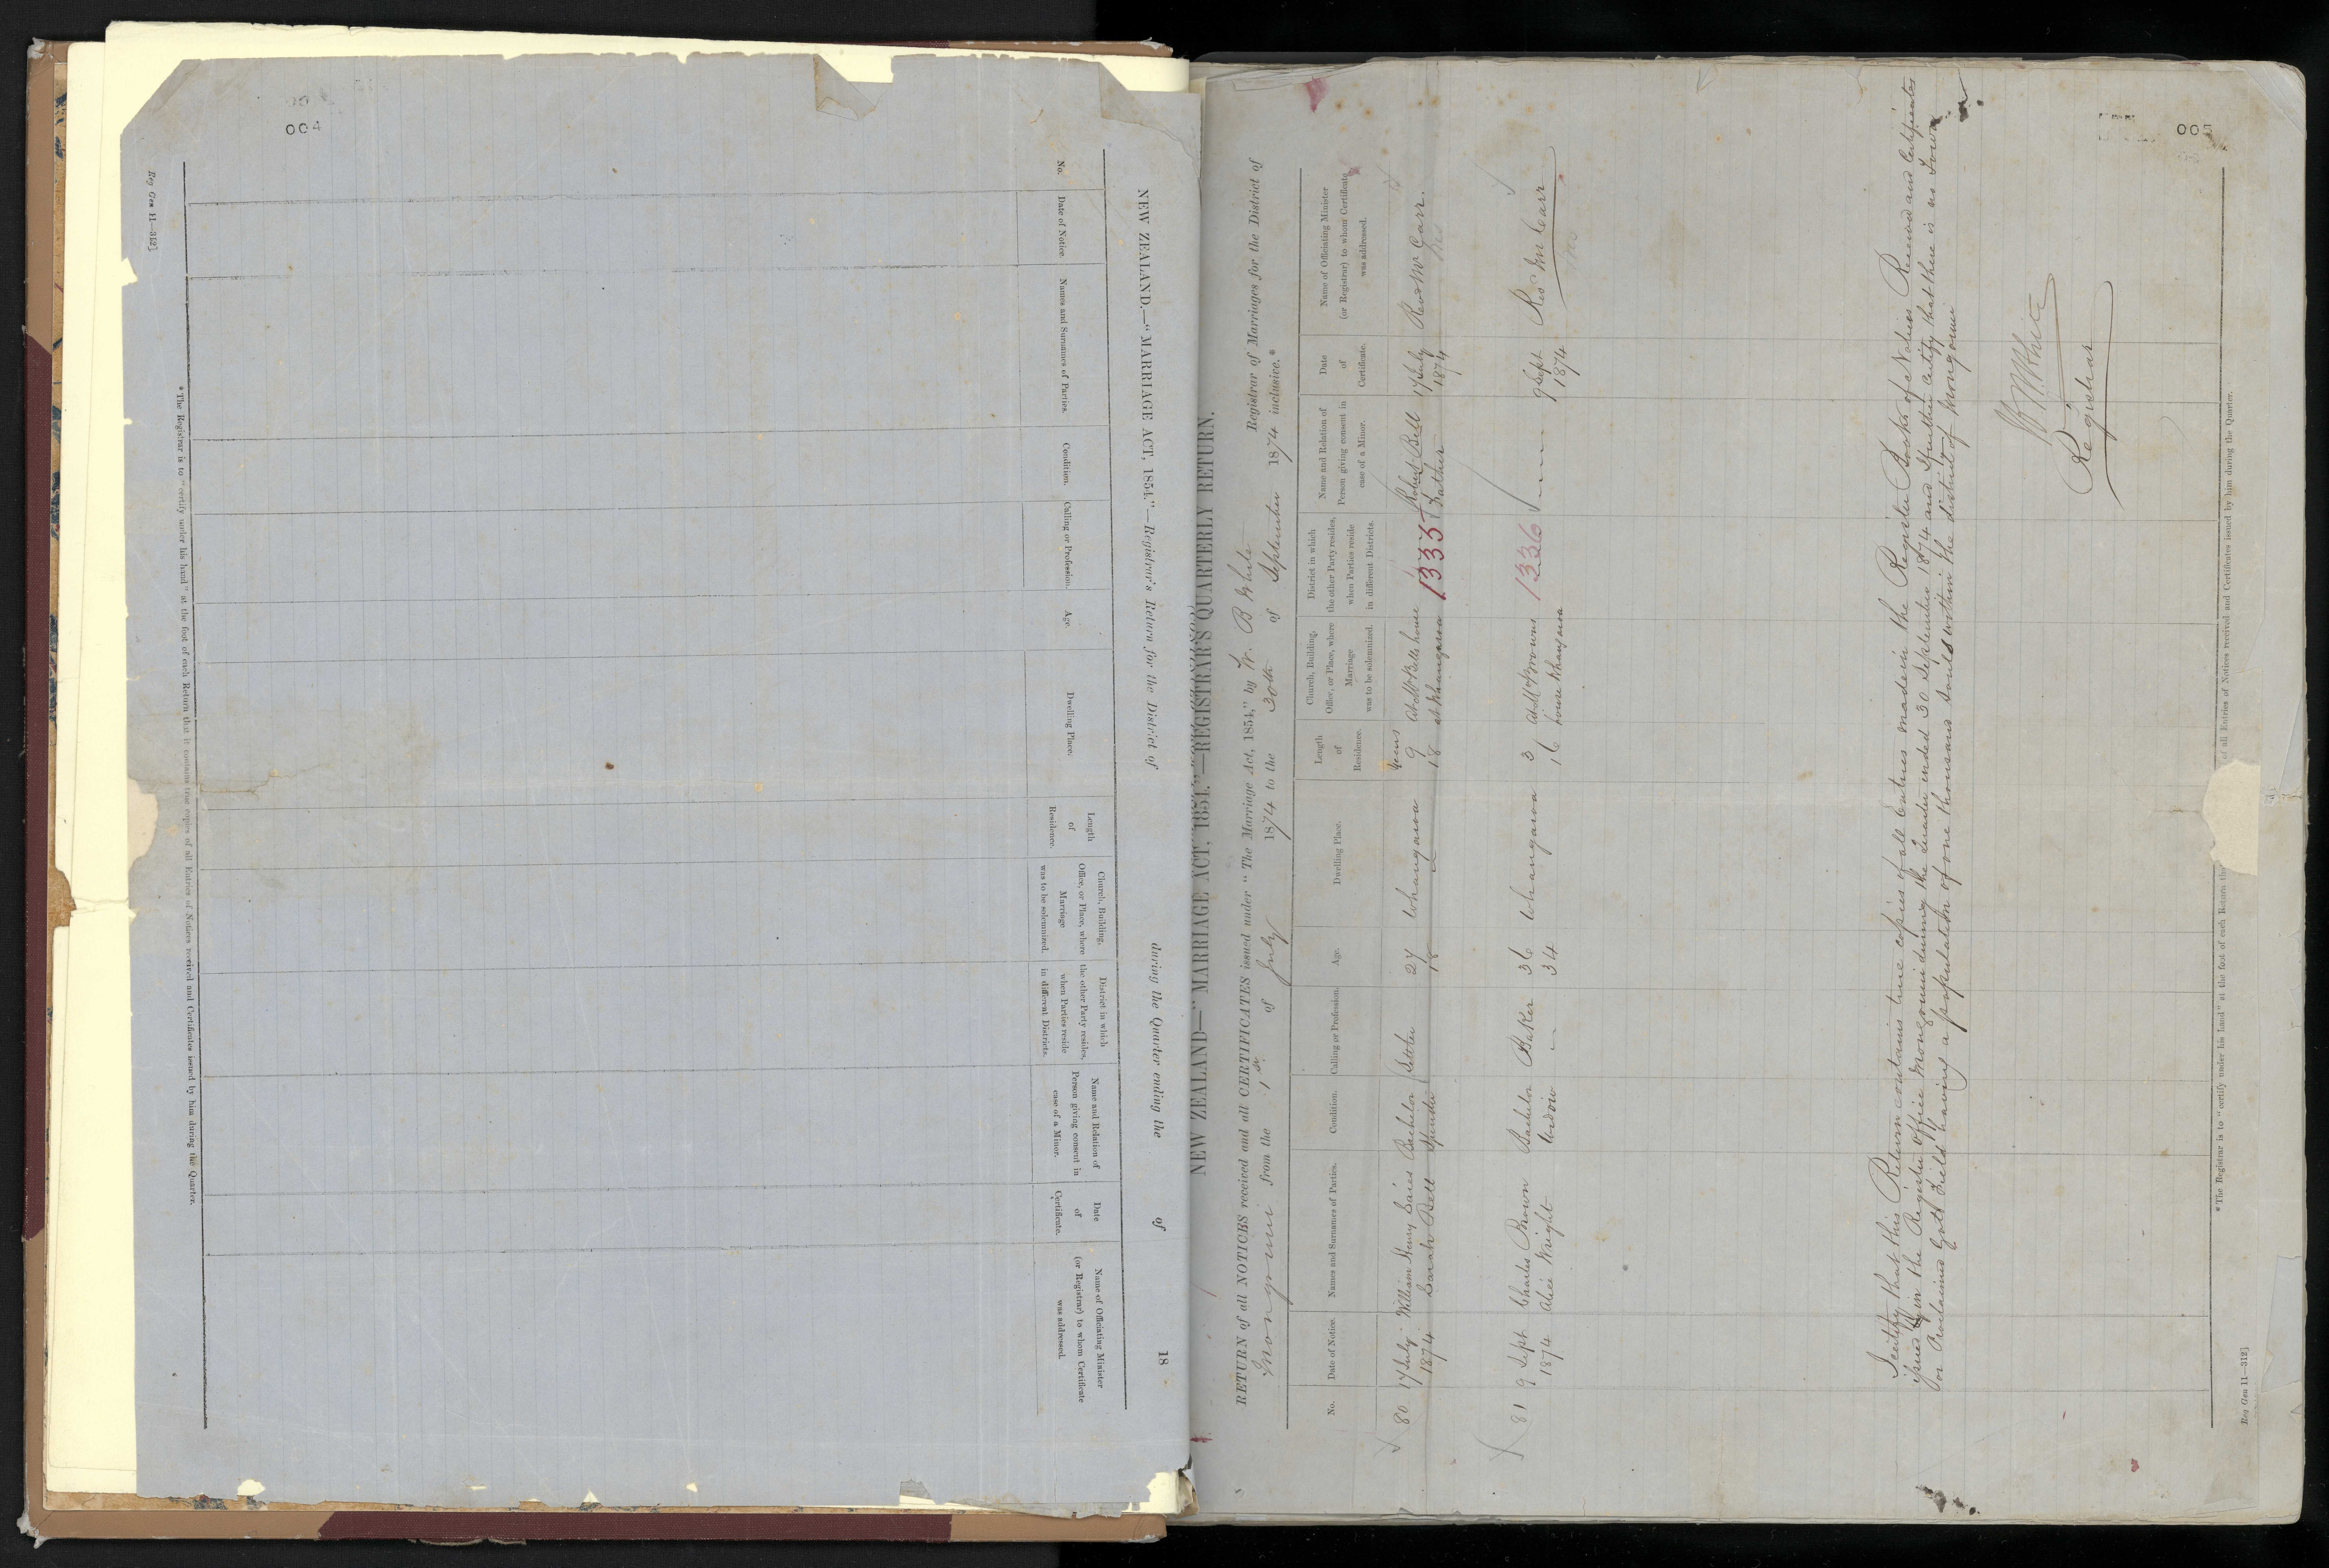 004
NEW ZEALAND.—"MARRIAGE ACT, 1854."—Registrar's Return for the District of during the Quarter ending the of 18
No.
Date of Notice.
Names and Surnames of Parties.
Condition.
Calling or Profession.
Age.
Dwelling Place.
Length
of
Residence.
Church, Building,
Office, or Place, where
Marriage
was to be solemnized.
District in which
the other Party resides,
when Parties reside
in different Districts.
Name and Relation of
Person giving consent in
case of a Minor.
Date
of
Certificate.
Name of Officiating Minister
(or Registrar) to whom Certificate
was addressed.
* The Registrar is to "certify under his hand" at the foot of each Return that it contains true copies of all Entries of Notices received and Certificates issued by him during the Quarter.
Reg Gen 11—312]
005
NEW ZEALAND—"MARRIAGE ACT, 1854."—REGISTRAR'S QUARTERLY RETURN.
RETURN of all NOTICES received and all CERTIFICATES issued under "The Marriage Act, 1854," by W. B White Registrar of Marriages for the District of
Mongonui from the 1st of July 1874 to the 30th of September 1874 inclusive.*
No.
Date of Notice.
Names and Surnames of Parties.
Condition.
Calling or Profession.
Age.
Dwelling Place.
Length
of
Residence.
Church, Building,
Office, or Place, where
Marriage
was to be solemnized.
District in which
the other Party resides,
when Parties reside
in different Districts.
Name and Relation of
Person giving consent in
case of a Minor.
Date
of
Certificate.
Name of Officiating Minister
(or Registrar) to whom Certificate
was addressed.
Years
80 17 July William Henry Bachelor Settler 27 Whangaroa 9 At Mr Bells house 1335 Robert Bell 17 July Revd Mr Carr.
1874 Sarah Bell Spinster 18 18 at Whangaroa Father 1874
81 9 Sept Charles Brown Bachelor Baker 36 Whangaroa 3 At Mr Browns 1336 9 Sept Revd Mr Carr
1874 Alice Wright Widow 34 16 house Whangaroa 1874
I certify that this Return contains true copies of all Entries made in the Register Books of Notices Received and Certificates
issued by in the Register Office Mongonui during the Quarter ended 30 September 1874 and I further certify that there is no Town
or Proclaimed Gold Field having a population of one thousand souls within the district of Mongonui
W B White
Registrar
* The Registrar is to "certify under his hand" at the foot of each Return of all Entries of Notices received and Certificates issued by him during the Quarter.
Reg Gen 11—312]